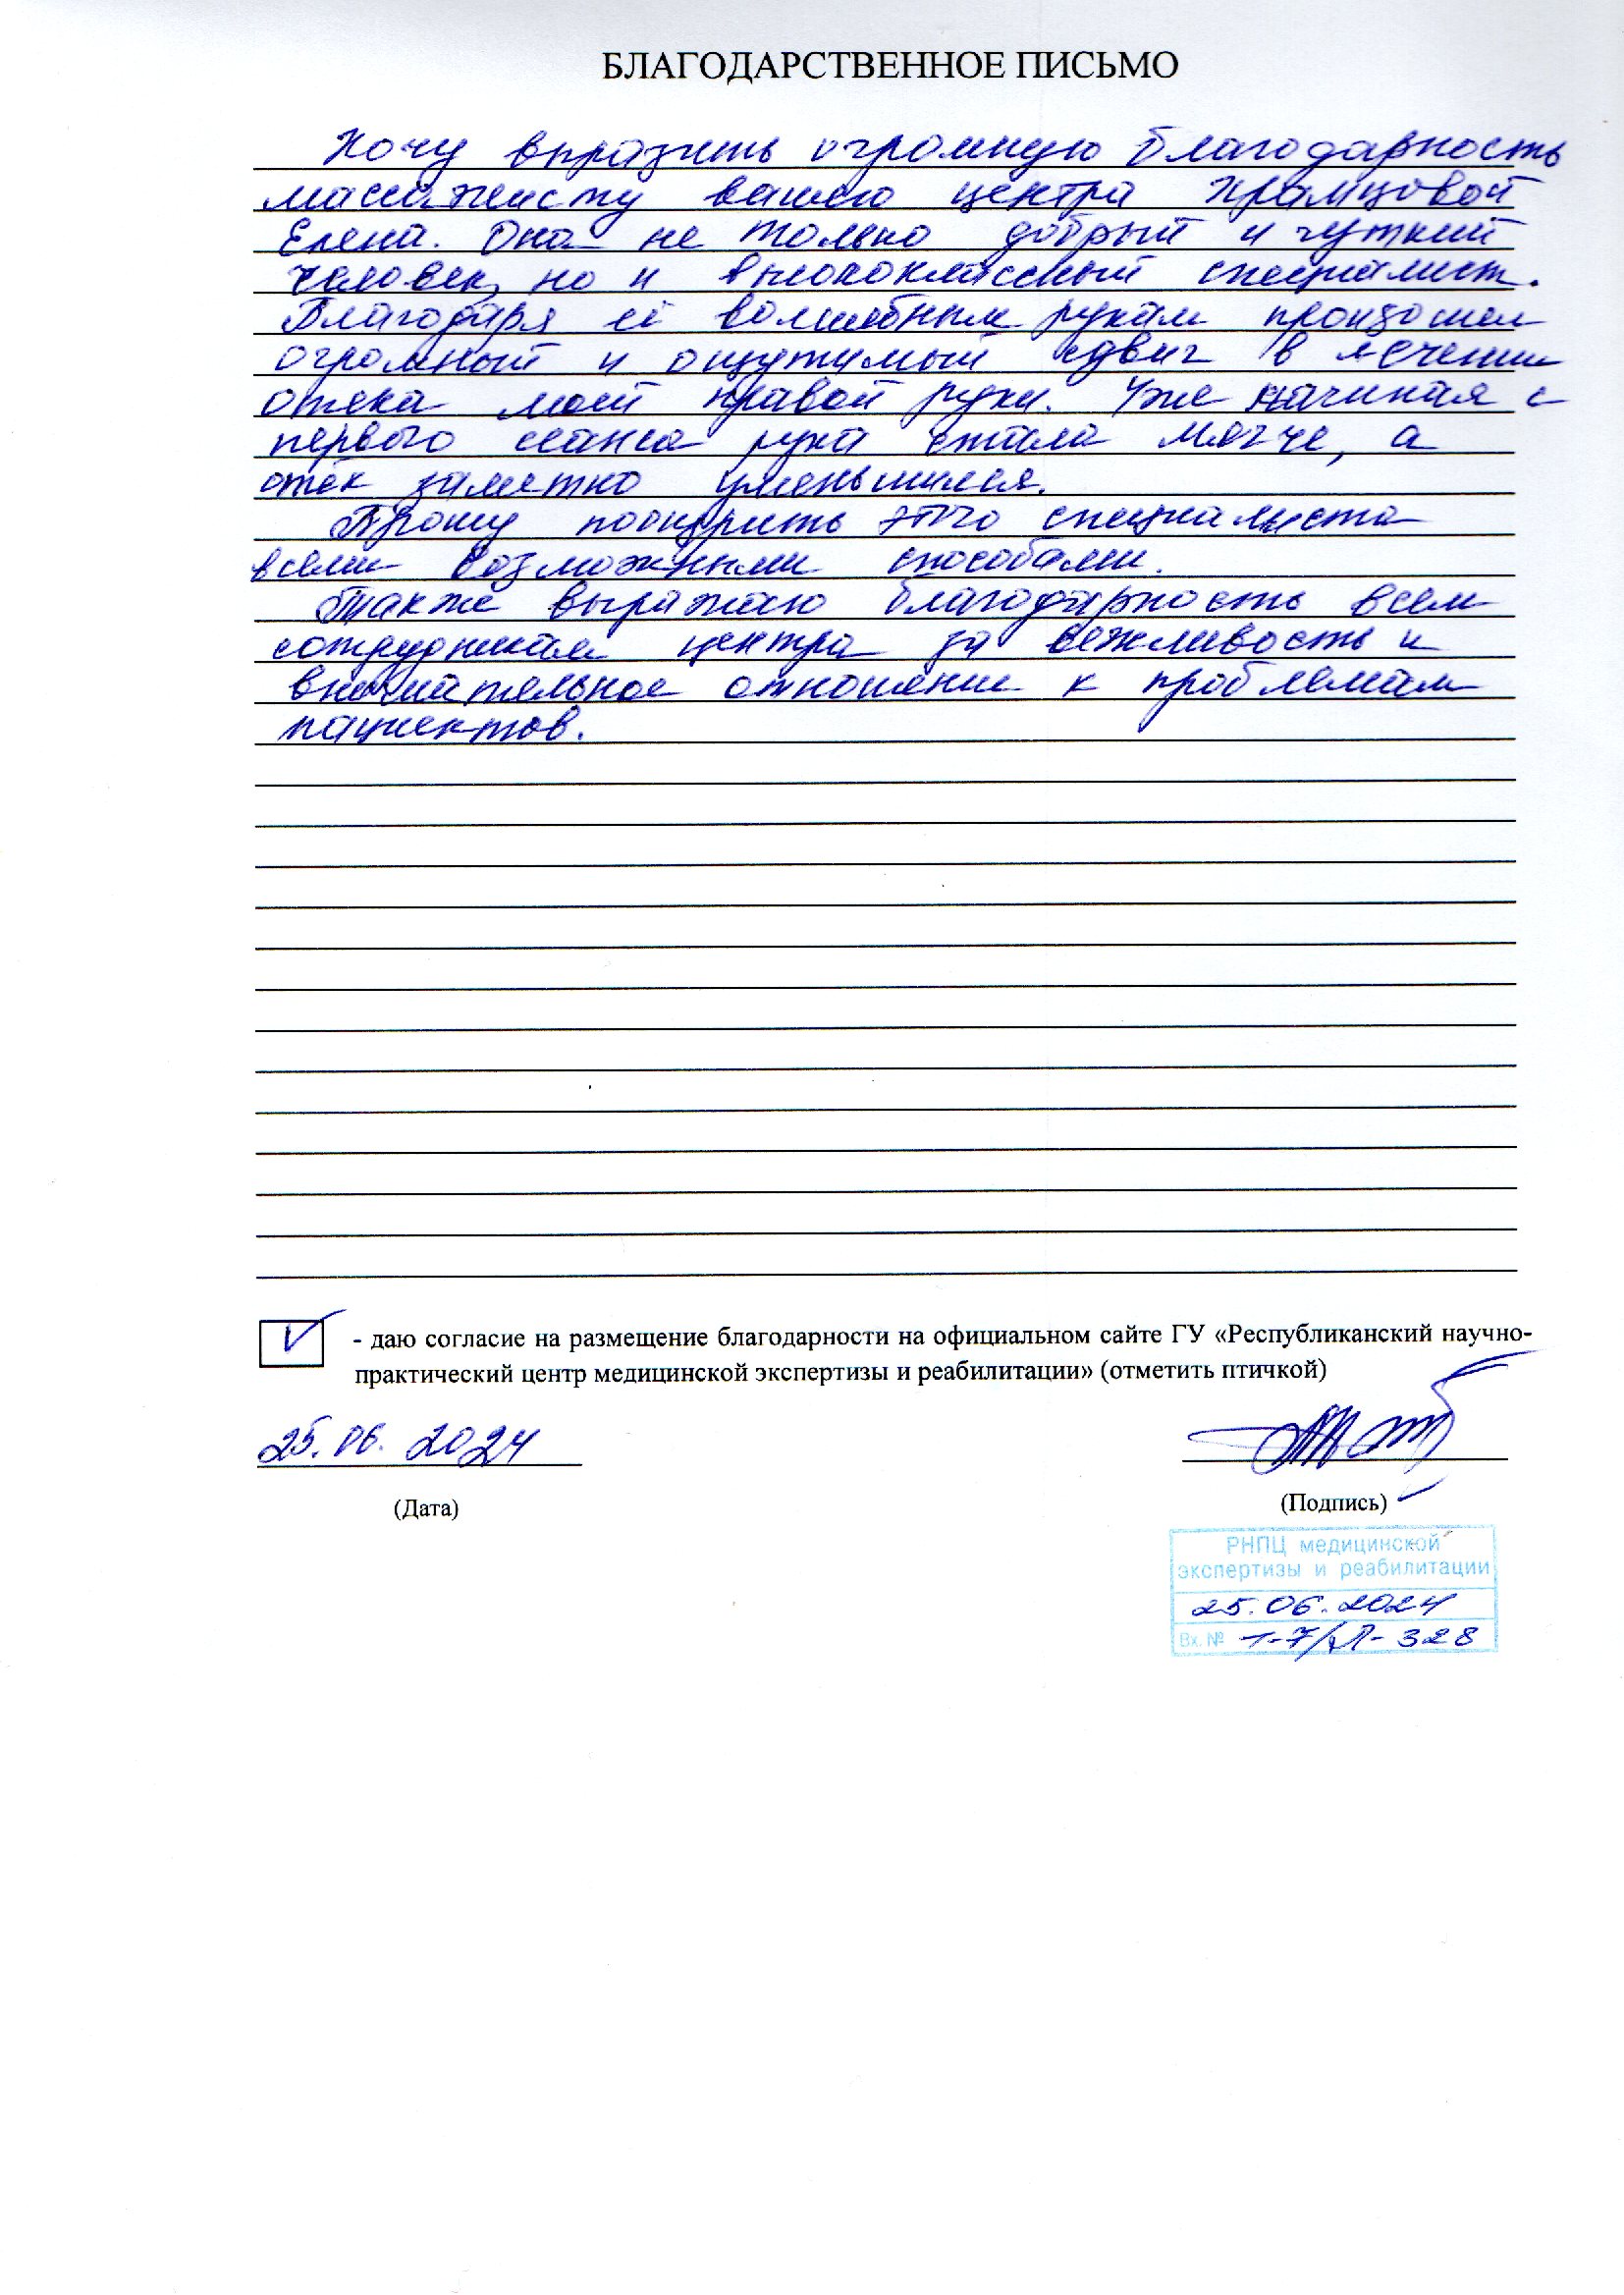 БЛАГОДАРСТВЕННОЕ ПИСЬМО
Хочу выразить огромную благодарность
массажисту вашего центра Храмцовой
Елена. Она не только добрый и чуткий
человек, но и высококлассный специалист.
Благодаря её волшебным рукам произошел
огромный и ощутимый сдвиг в лечении
отека моей правой руки. Уже начиная с
первого сеанса рука стала мягче, а
отёк заметно уменьшился.
Прошу поощрить этого специалиста
всеми возможными способами.
Также выражаю благодарность всем
сотрудникам центра за вежливость и
внимательное отношение к проблемам
пациентов.
- даю согласие на размещение благодарности на официальном сайте ГУ «Республиканский научно-
практический центр медицинской экспертизы и реабилитации» (отметить птичкой)
25.06.2024
(Дата) (Подпись)
РНПЦ медицинской
экспертизы и реабилитации
25.06.2024
Вх. № 1-7/П-328